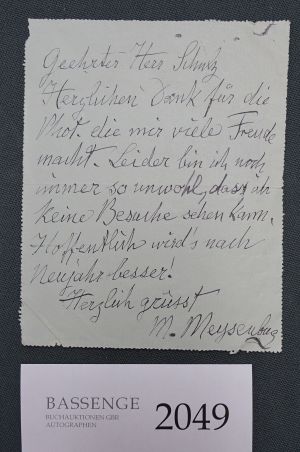 Geehrter Herr Schulz
Herzlichen Dank für die
Phot. die mir viele Freude
macht. Leider bin ich noch
immer so unwohl, dass ich
keine Besuche sehen kann.
Hoffentlich wird's nach
Neujahr besser!
Herzlich grüsst
M. Meysenbug
BASSENGE
BUCHAUKTIONEN GBR
AUTOGRAPHEN
2049